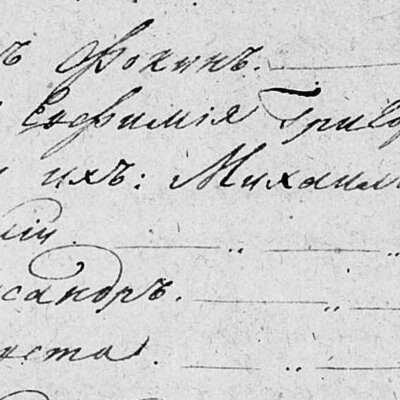 ъ Фокинъ.
Евфимія Григо
и ихъ: Михаил
ій
ксандръ.
ста.